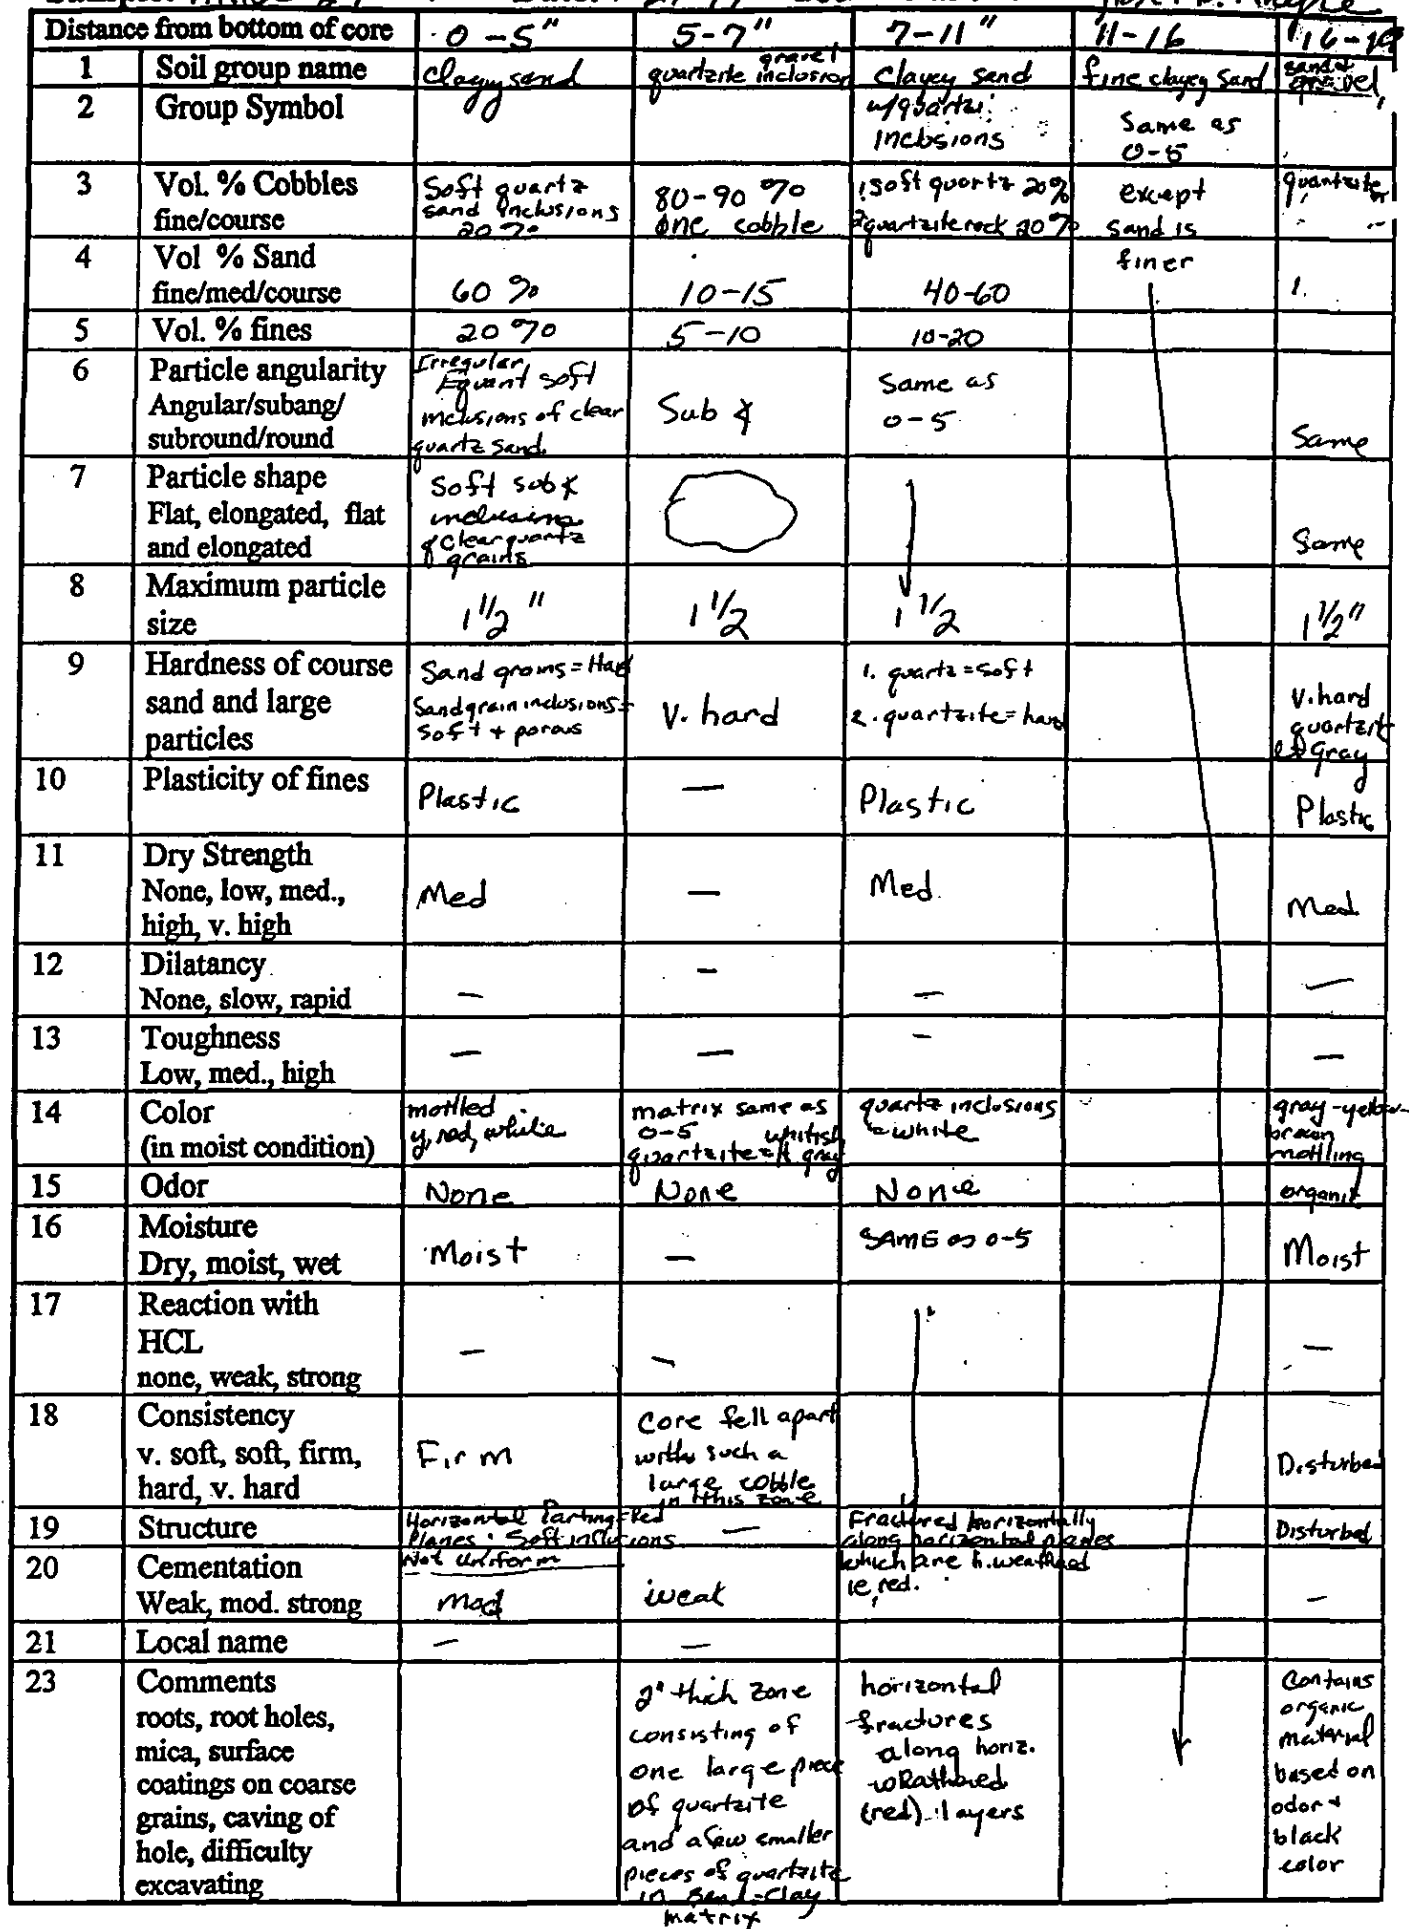 Distance from bottom of core 0-5" 5-7" 7-11" 11-16
1 Soil group name Clayy sand quartzite gravel inclusion Clayey Sand fine clayey Sand sand & gravel,
2 Group Symbol w/quartz inclusions Same as 0-5
3 Vol. % Cobbles fine/course Soft quartz sand inclusions 20% 80-90 % one cobble 1. soft quartz 20% 2 quartzite rock 20% except sand is quartzite
4 Vol % Sand fine/med/course 60 % 10-15 40-60 finer
5 Vol. % fines 20 % 5-10 10-20
6 Particle angularity Angular/subang/ subround/round Irregular Equant soft inclusions of clear quartz sand. Sub ∡ Same as 0-5 Same
7 Particle shape Flat, elongated, flat and elongated Soft sub ∡ inclusions of clear quartz grains Same
8 Maximum particle size 1 1/2 " 1 1/2 1 1/2 1 1/2"
9 Hardness of course sand and large particles Sand grains = Hard Sand grain inclusions = soft + porous V. hard 1. quartz = soft 2. quartzite = hard V. hard quartzite gray
10 Plasticity of fines Plastic — Plastic Plastic
11 Dry Strength None, low, med., high, v. high Med — Med. Med
12 Dilatancy None, slow, rapid — — — —
13 Toughness Low, med., high — — — —
14 Color (in moist condition) mottled y, red, white matrix same as 0-5 quartzite = whitish lt gray quartz inclusions = white gray-yellow-brown mottling
15 Odor None None None organic
16 Moisture Dry, moist, wet Moist — SAME as 0-5 Moist
17 Reaction with HCL none, weak, strong — — —
18 Consistency v. soft, soft, firm, hard, v. hard Firm Core fell apart with such a large cobble in this zone Disturbed
19 Structure Horizontal Parting = Red Planes; Soft inclusions Not Uniform — Fractured horizontally along horizontal planes which are h. weathered ie, red. Disturbed
20 Cementation Weak, mod. strong Mod weak —
21 Local name — —
23 Comments roots, root holes, mica, surface coatings on coarse grains, caving of hole, difficulty excavating 2" thick zone consisting of one large piece of quartzite and a few smaller pieces of quartzite in sand-clay matrix horizontal fractures along horiz. weathered (red) layers Contains organic material based on odor + black color